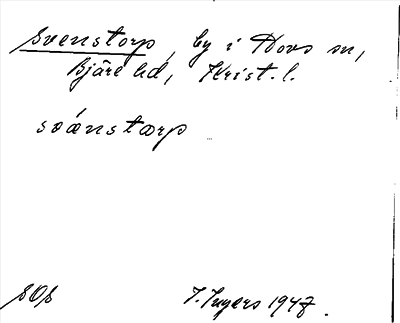 Svenstorp, by i Hovs sn,
Bjäre hd, Krist. l.
svánstɔrp
SOb
I. Ingers 1947.